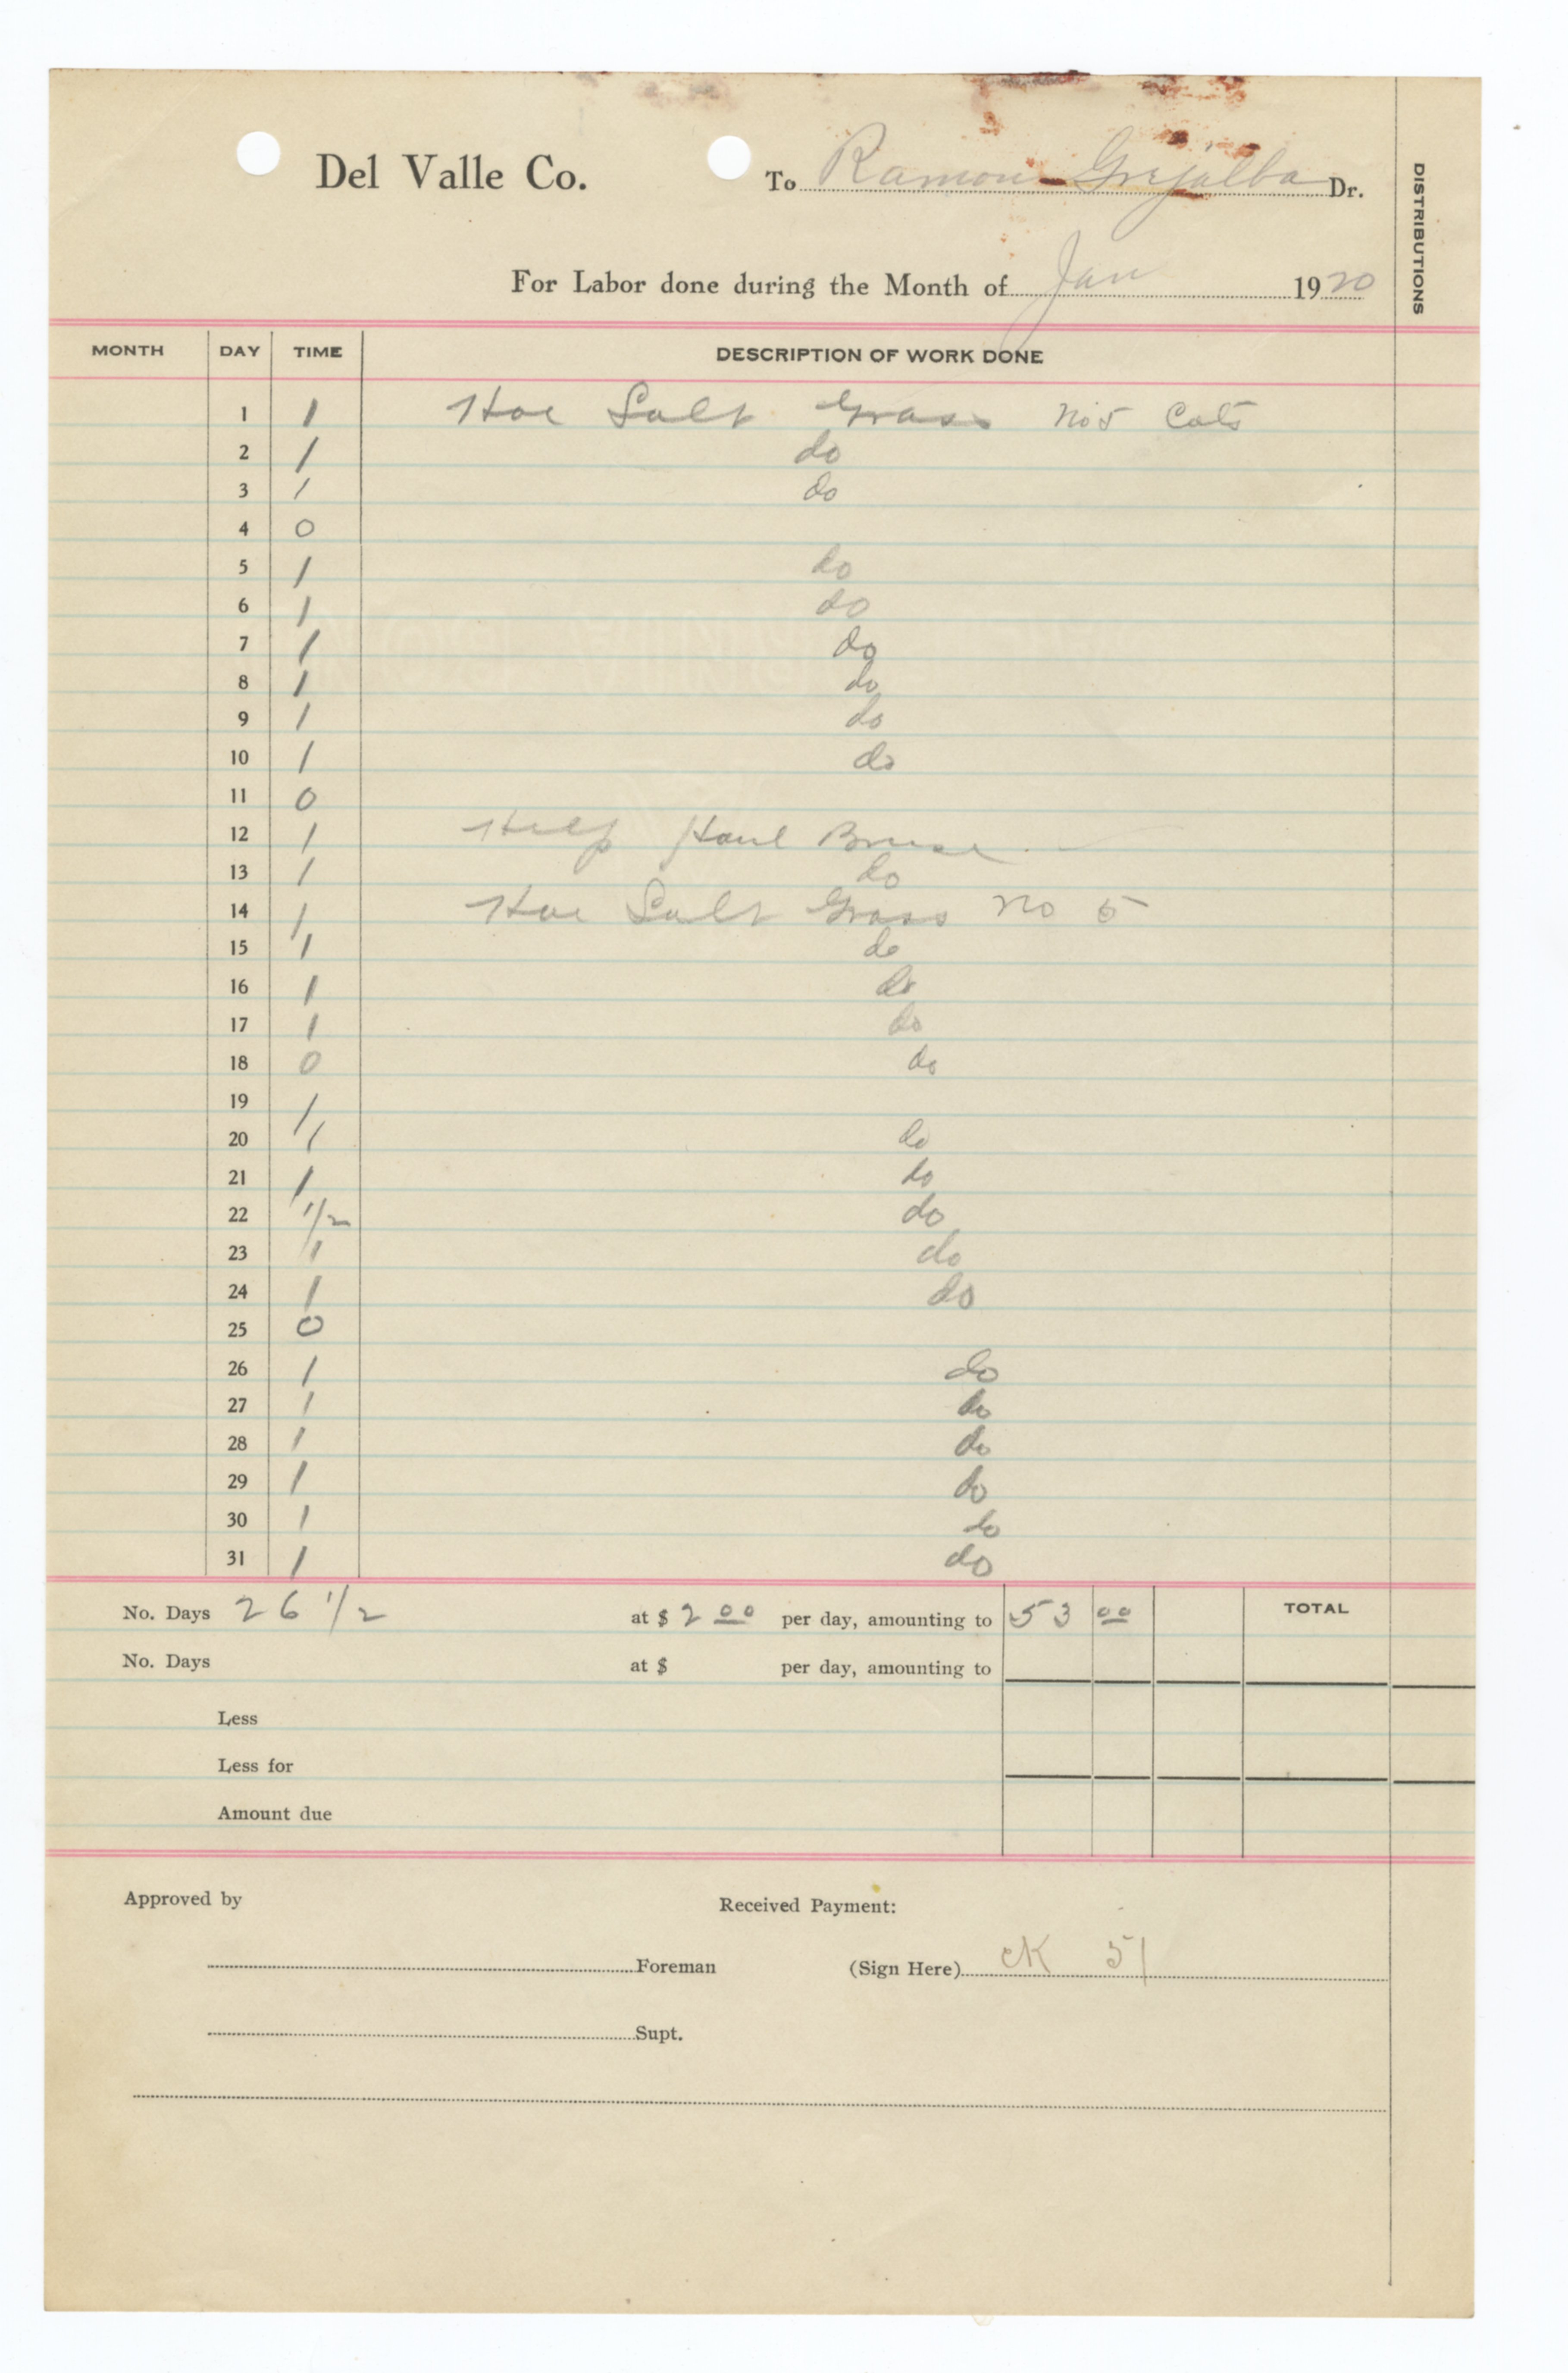 Del Valle Co. To Ramon Grejalba Dr.
DISTRIBUTIONS
For Labor done during the Month of Jan 1920
MONTH DAY TIME DESCRIPTION OF WORK DONE
1 1 Hoe Salt Grass No 5 Cats
2 1 do
3 1 do
4 0
5 1 do
6 1 do
7 1 do
8 1 do
9 1 do
10 1 do
11 0
12 1 Help Haul
13 1 do
14 1 Hoe Salt Grass No 5
15 1 do
16 1 do
17 1 do
18 0 do
19 1
20 1 do
21 1 do
22 1/2 do
23 1 do
24 1 do
25 0
26 1 do
27 1 do
28 1 do
29 1 do
30 1 do
31 1 do
No. Days 26 1/2 at $ 2 00 per day, amounting to 53 00 TOTAL
No. Days at $ per day, amounting to
Less
Less for
Amount due
Approved by Received Payment:
Foreman (Sign Here) CK 51
Supt.